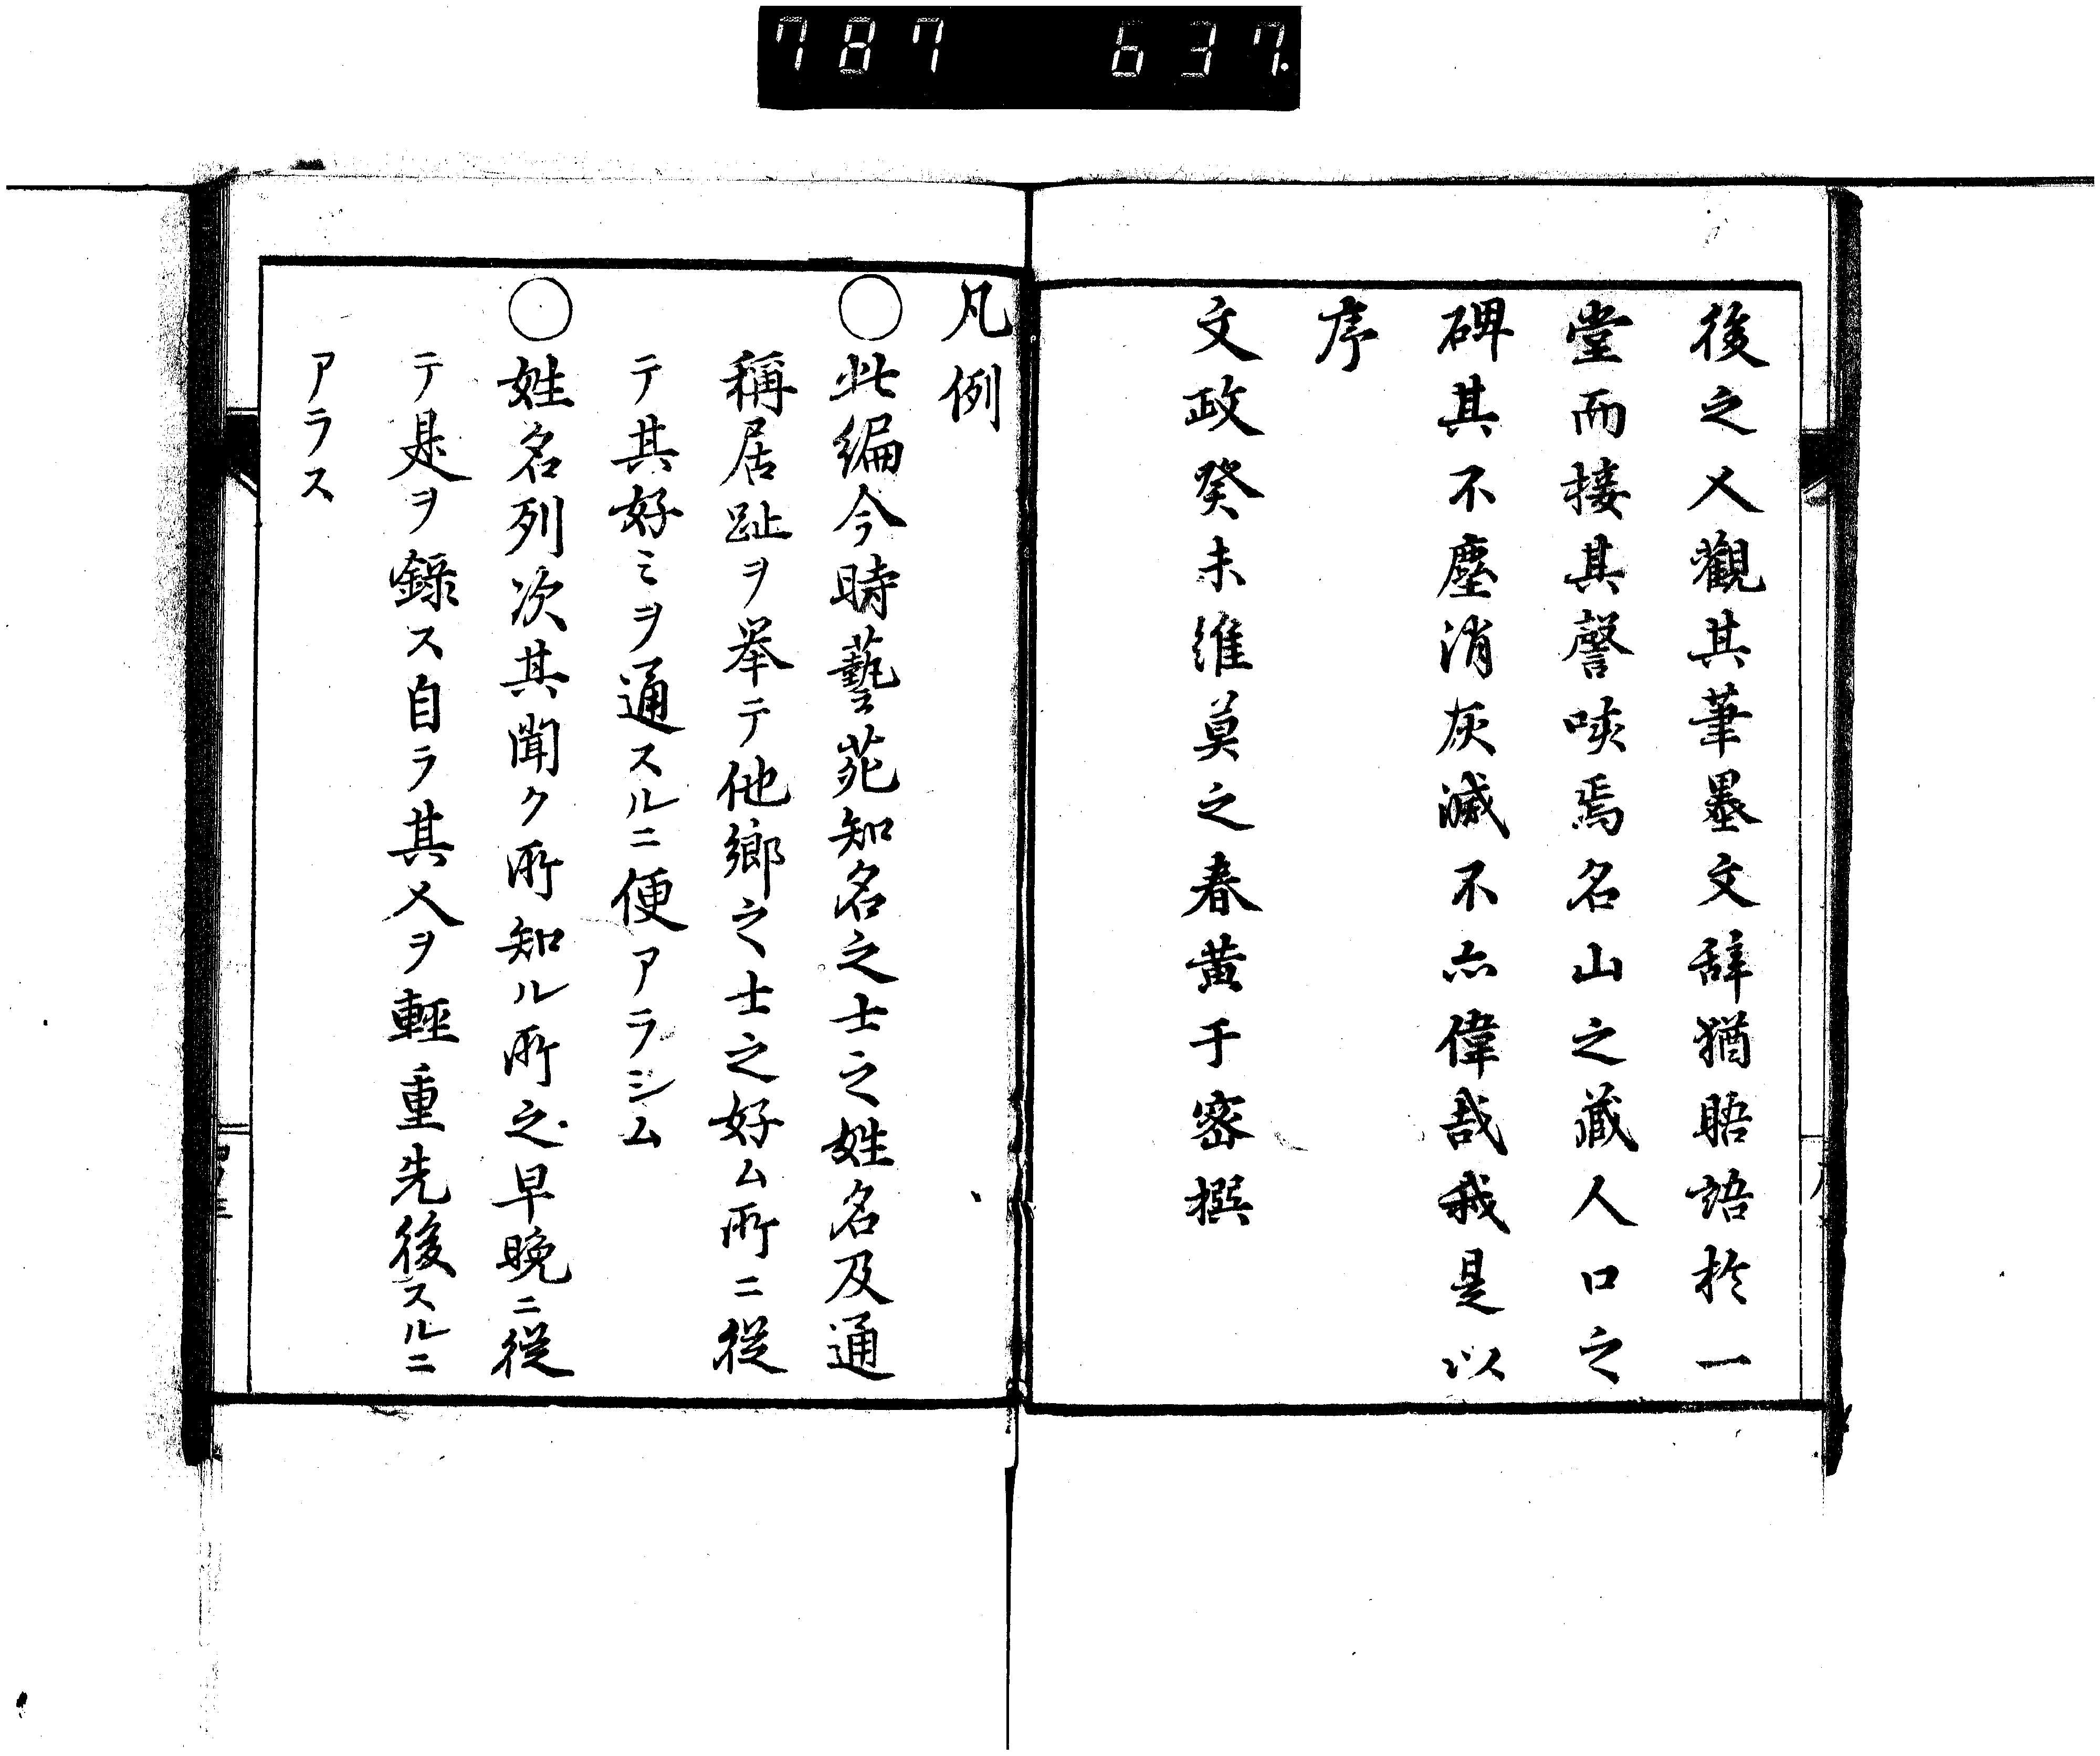 787 637.
後之人觀其筆墨文辭猶晤語於一
堂而接其謦咳焉名山之藏人口之
碑其不塵消灰滅不亦偉哉我是以
序
文政癸未維莫之春黄千密撰
凡例
○此編今時藝苑知名之士之姓名及通
稱居趾ヲ举テ他鄉之士之好ム所ニ從
テ其好ミヲ通スルニ便アラシム
○姓名列次其聞ク所知ル所之早晩ニ從
テ是ヲ錄ス自ラ其人ヲ輕重先後スルニ
アラス